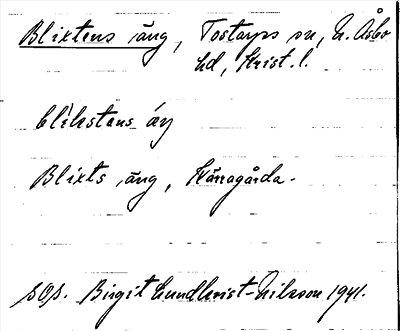 Blixtens äng, Tostarps sn, N. Åsbo
hd, Krist. l.
blìkstans äŋ
Blixts äng, Kånagårda.
SOS. Birgit Lundkvist-Nilsson 1941.